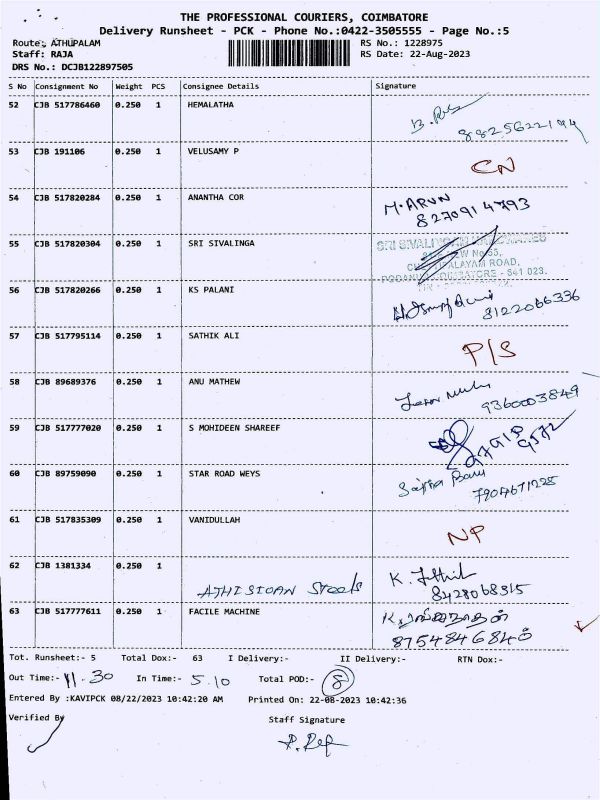 THE PROFESSIONAL COURIERS, COIMBATORE
Delivery Runsheet - PCK - Phone No.:0422-3505555 - Page No.:5
Route: ATHUPALAM RS No.: 1228975
Staff: RAJA RS Date: 22-Aug-2023
DRS No.: DCJB122897505
S No Consignment No Weight PCS Consignee Details Signature
52 CJB 517786460 0.250 1 HEMALATHA
8825622194
53 CJB 191106 0.250 1 VELUSAMY P CN
54 CJB 517820284 0.250 1 ANANTHA COR M. ARUN
8270914793
55 CJB 517820304 0.250 1 SRI SIVALINGA
ROAD,
641 023.
56 CJB 517820266 0.250 1 KS PALANI 8122066336
57 CJB 517795114 0.250 1 SATHIK ALI P/S
58 CJB 89689376 0.250 1 ANU MATHEW
9360003849
59 CJB 517777020 0.250 1 S MOHIDEEN SHAREEF
60 CJB 89759090 0.250 1 STAR ROAD WEYS
7904671228
61 CJB 517835309 0.250 1 VANIDULLAH NP
62 CJB 1381334 0.250 1 Steels K.
8428068315
63 CJB 517777611 0.250 1 FACILE MACHINE
8754846840
Tot. Runsheet:- 5 Total Dox:- 63 I Delivery:- II Delivery:- RTN Dox:-
Out Time:- 11.30 In Time:- 5.10 Total POD:- 8
Entered By :KAVIPCK 08/22/2023 10:42:20 AM Printed On: 22-08-2023 10:42:36
Verified By Staff Signature